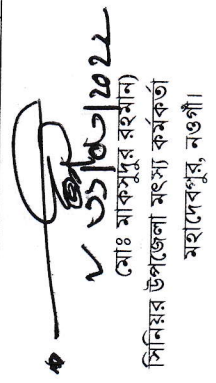 ৩১/০৩/২০২২
(মোঃ মাকসুদুর রহমান)
সিনিয়র উপজেলা মৎস্য কর্মকর্তা
মহাদেবপুর, নওগাঁ।